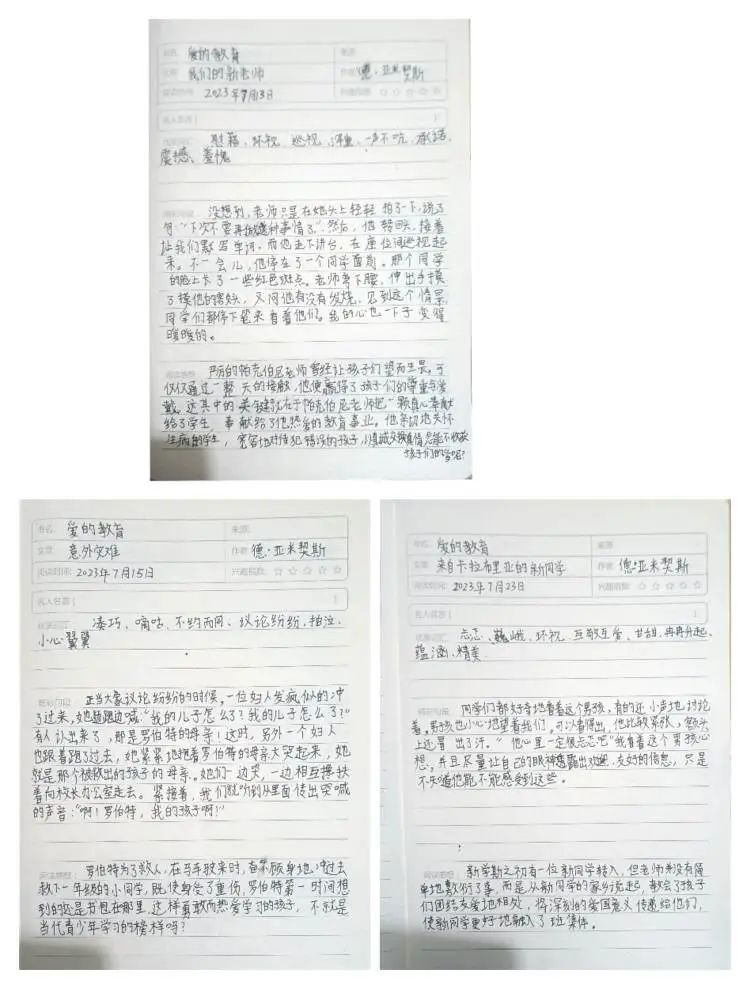 书名: 爱的教育 来源:
文章: 我们的新老师 作者: 德·亚米契斯
阅读时间: 2023年7月13日 兴趣指数: ☆☆☆☆☆
名人名言(
优美词汇: 慰藉、环视、巡视、凝重、一声不吭、承诺、
震撼、羞愧
精彩句段: 没想到,老师只是在她头上轻轻拍了一下,说了
句:“下次不要再做这种事情了。”然后,他转回头,接着
让我们默写单词,而他走下讲台,在座位间巡视起
来。不一会儿,他停在了一个同学面前。那个同学
的脸上长了一些红色斑点。老师弯下腰,伸出手摸
了摸他的额头,又问他有没有发烧,见到这个情景,
同学们都停下笔来看着他们。我的心也一下子觉得
暖暖的。
阅读感想: 严厉的帕克伯尼老师曾经让孩子们望而生畏,可
仅仅通过一整天的接触,他便赢得了孩子们的尊重与爱
戴。这其中的关键就在于帕克伯尼老师把一颗真心奉献
给了学生,奉献给了他热爱的教育事业。他亲切地关怀
生病的学生,宽容地对待犯错误的孩子,
孩子们的心呢?
书名: 爱的教育 来源:
文章: 意外灾难 作者: 德·亚米契斯
阅读时间: 2023年7月15日 兴趣指数: ☆☆☆☆☆
名人名言(
优美词汇: 凑巧、嘀咕、不约而同、议论纷纷、抽泣、
小心翼翼
精彩句段: 正当大家议论纷纷的时候,一位妇人发疯似的冲
了过来,她边跑边喊:“我的儿子怎么了?我的儿子怎么了?”
有人认出来了,那是罗伯特的母亲!这时,另外一个妇人
也跟着跑了过去,她紧紧地抱着罗伯特的母亲大哭起来,她
就是那个被救出的孩子的母亲。她们一边哭,一边相互搀扶
着向校长办公室走去。紧接着,我们就听到从里面传出哭喊
的声音:“啊!罗伯特,我的孩子啊!”
阅读感想: 罗伯特为了救人,在马车驶来时,奋不顾身地冲过去
救下一年级的小同学,既使身受了重伤,罗伯特第一时间想
到的还是书包在哪里,这样勇敢而热爱学习的孩子,不就是
当代青少年学习的榜样吗?
书名: 爱的教育 来源:
文章: 来自卡拉布里亚的新同学 作者: 德·亚米契斯
阅读时间: 2023年7月23日 兴趣指数: ☆☆☆☆☆
名人名言(
优美词汇: 忐忑、巍峨、环视、互敬互爱、甘甜、冉冉升起、
蕴涵、精美
精彩句段: 同学们都好奇地看着这个男孩,有的还小声地讨论
着。男孩也小心地望着我们,可以看得出,他比较紧张,额头
上还冒出了汗。“他心里一定很忐忑吧”我看着这个男孩心
想,并且尽量让自己的眼神透露出欢迎、友好的信息,只是
不知道他能不能感受到这些。
阅读感想: 新学期之初有一位新同学转入,但老师并没有简
单地敷衍了事,而是从新同学的家乡说起,教会了孩子
们团结友爱地相处,将深刻的爱国意义传递给他们,
使新同学更好地融入了班集体。